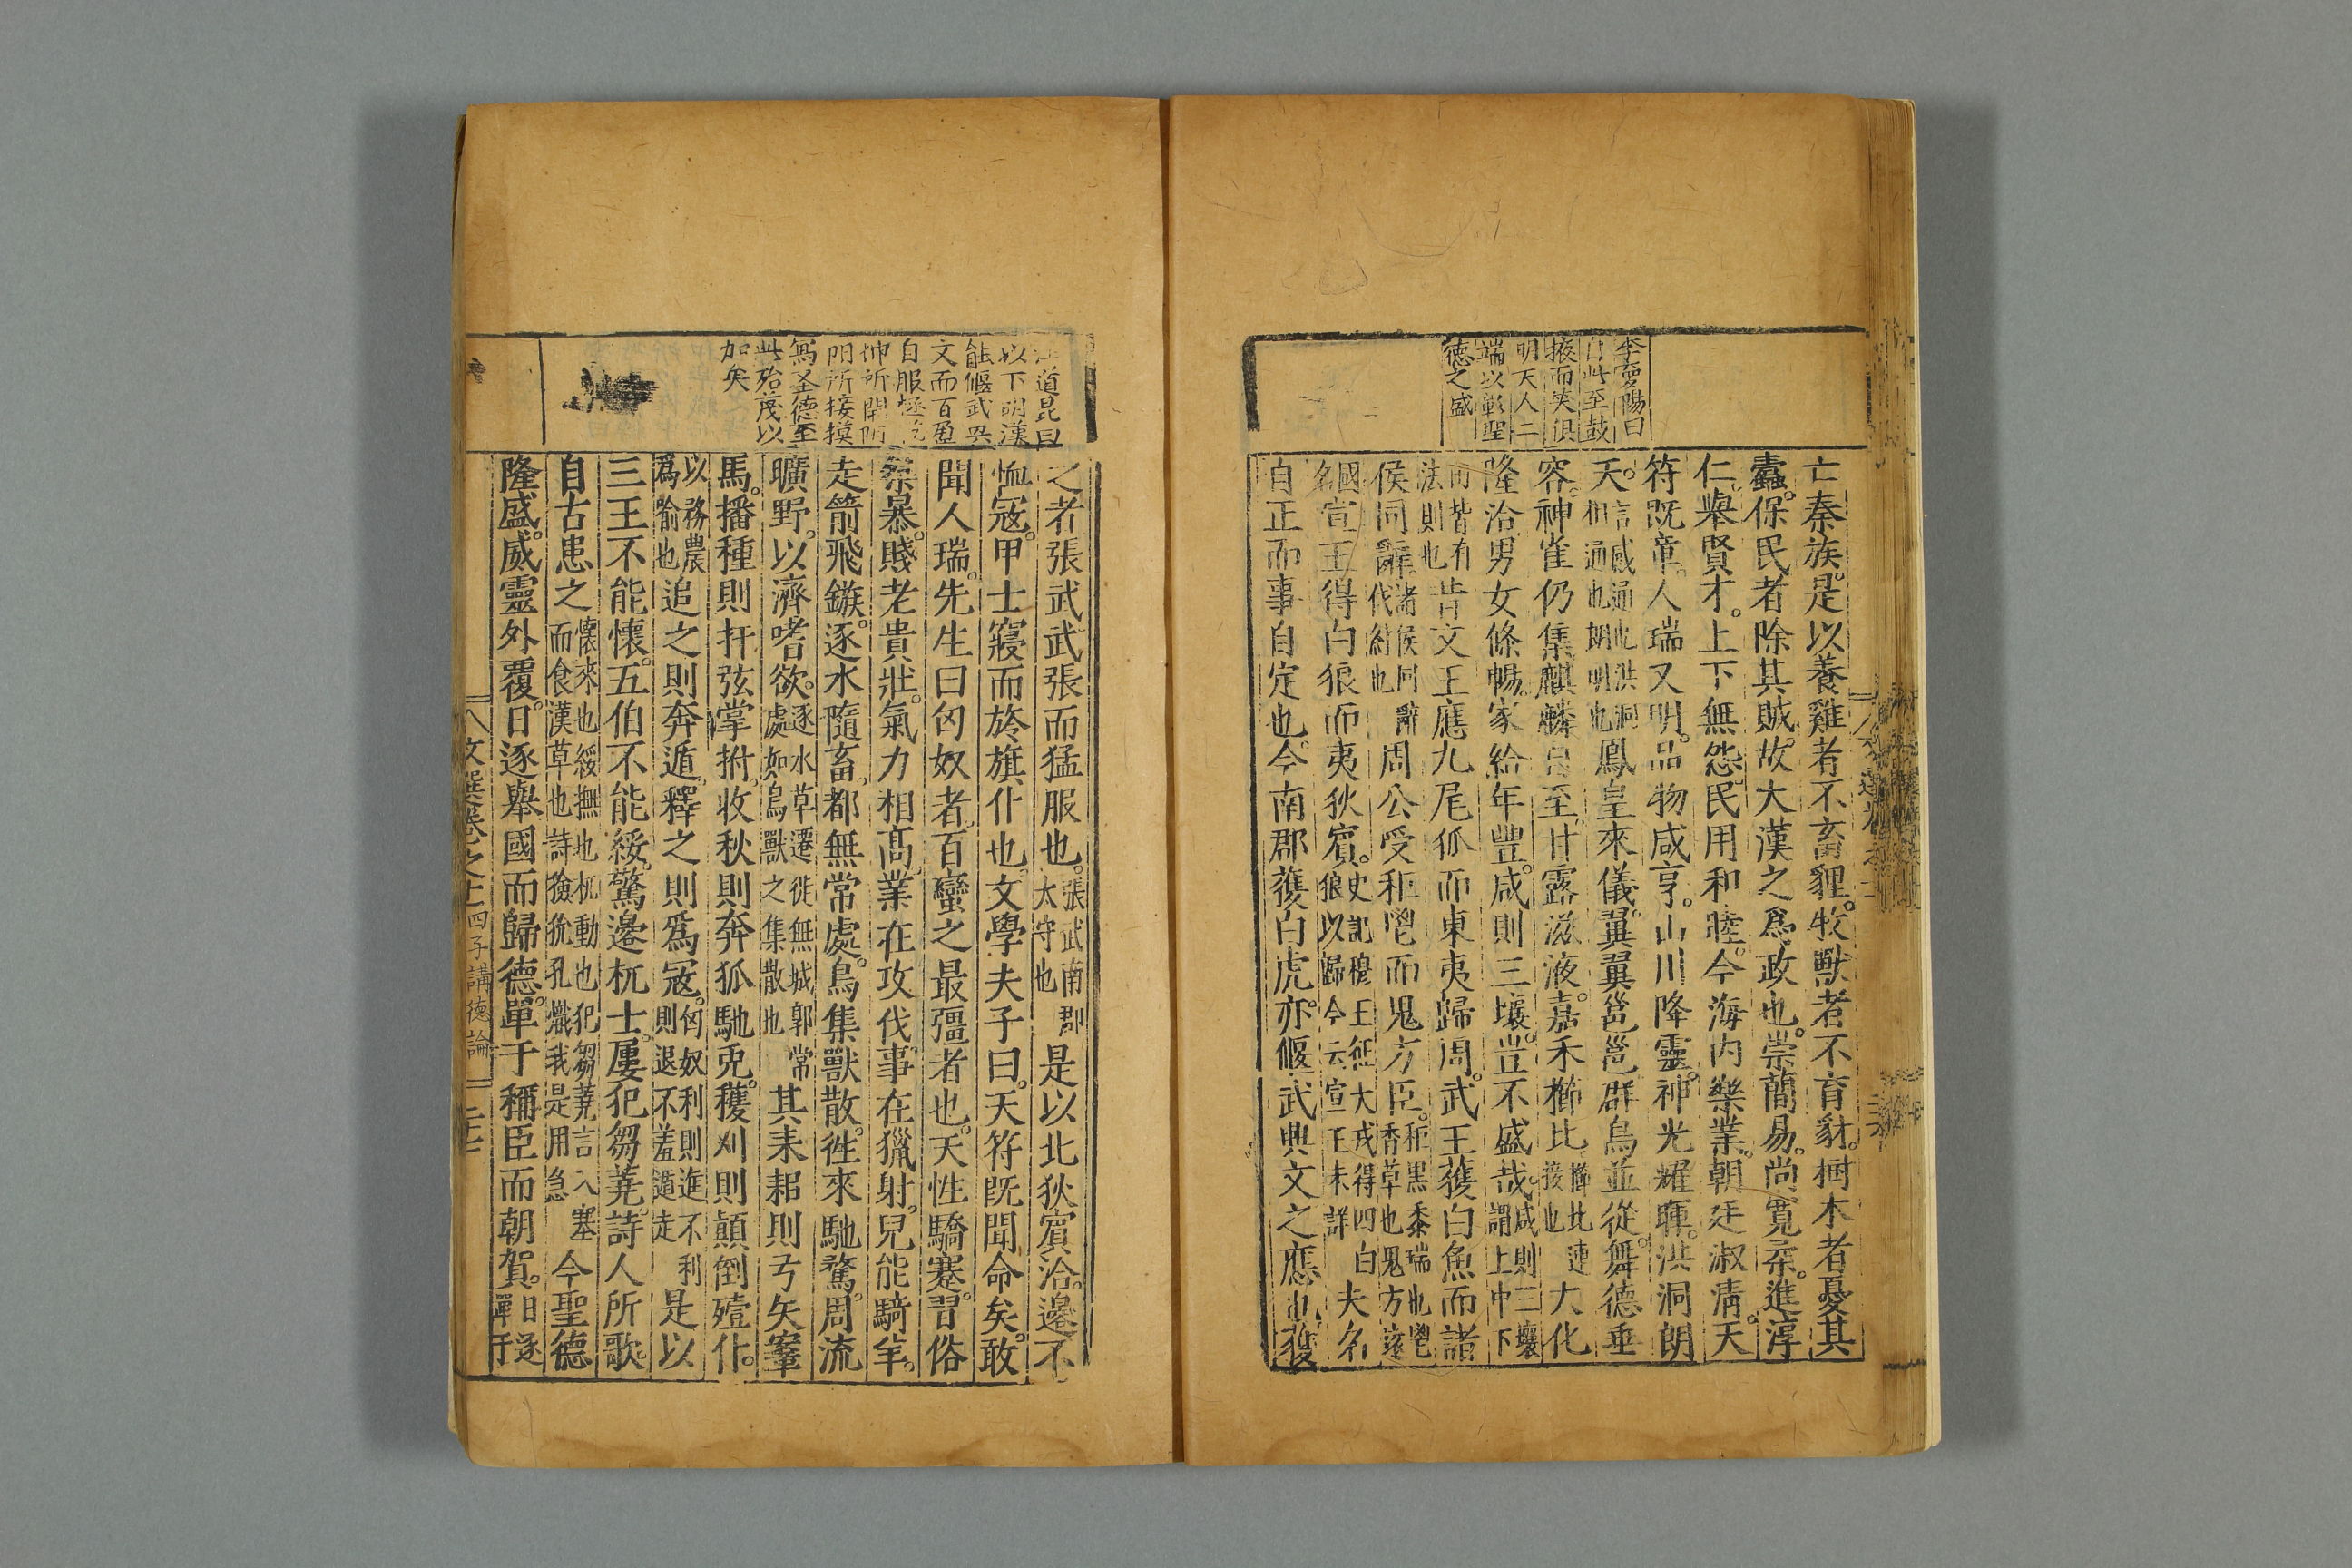 李夢陽曰
自此至鼓
掖而笑俱
明天人二
端以彰聖
德之盛
亡秦族。是以養雞者不畜貍。牧獸者不育豺。樹木者憂其
蠹。保民者除其賊。故大漢之爲政也。崇簡易。尚寬柔。進淳
仁。舉賢才。上下無怨。民用和睦。今海內樂業。朝廷淑清。天
符既章。人瑞又明。品物咸亨。山川降靈。神光耀暉。洪洞朗
天。言感通也洪洞相通也朗明也鳳皇來儀。翼翼邕邕。群鳥並從。舞德垂
容。神雀仍集。麒麟自至。甘露滋液。嘉禾櫛比。櫛比連接也大化
隆洽。男女條暢。家給年豐。咸則三壤。豈不盛哉。咸則三壤謂上中下
皆有法則也昔文王應九尾狐而東夷歸周。武王獲白魚而諸
侯同辭。諸侯同辭伐紂也周公受秬鬯而鬼方臣。秬黑黍瑞也鬯香草也鬼方遠
國名宣王得白狼而夷狄賓。史記穆王征犬戎得四白狼以歸今云宣王未詳夫名
自正而事自定也。今南郡獲白虎。亦偃武興文之應也。獲
文選卷之十二
道昆曰
以下明漢
能偃武興
文而百蠻
自服
坤所開
陰所接摸
寫圣德至
此殆蔑以
加矣
之者張武。武張而猛服也。張武南郡太守也是以北狄賓洽。邊不
恤寇。甲士寢而旍旗仆也。文學夫子曰。天符既聞命矣。敢
聞人瑞。先生曰匈奴者。百蠻之最彊者也。天性驕蹇。習俗
桀暴。賤老貴壯。氣力相高。業在攻伐。事在獵射。兒能騎羊。
走箭飛鏃。逐水隨畜。都無常處。鳥集獸散。往來馳騖。周流
曠野。以濟嗜欲。逐水草遷徙無城郭常處如鳥獸之集散也其耒耜則弓矢鞌
馬。播種則扞弦掌拊。收秋則奔狐馳兎。穫刈則顛倒殪仆。
以務農爲喻也追之則奔遁。釋之則爲寇。匈奴利則進不利則退不羞遁走是以
三王不能懷。五伯不能綏。驚邊杌士。屢犯芻蕘。詩人所歌。
自古患之懷來也綏撫也杌動也犯芻蕘言入塞而食漢草也詩獫狁孔熾我是用急今聖德
隆盛。威靈外覆。日逐舉國而歸德。單于稱臣而朝賀。日逐單于
文選卷之十二 四子講德論 二十七